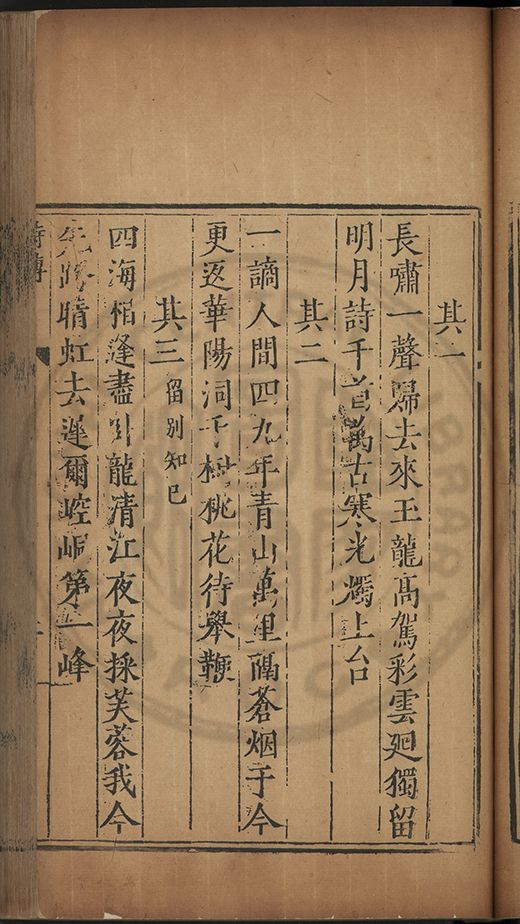 其一
長嘯一聲歸去來玉龍高駕彩雲廻獨留
明月詩千首萬古寒光燭上台
其二
一謫人間四九年青山萬里隔蒼烟于今
更返華陽洞千樹桃花待舉鞭
其三 留別知已
四海相逢盡卧龍清江夜夜採芙蓉我今
先跨晴虹去遲爾崆峒第一峰